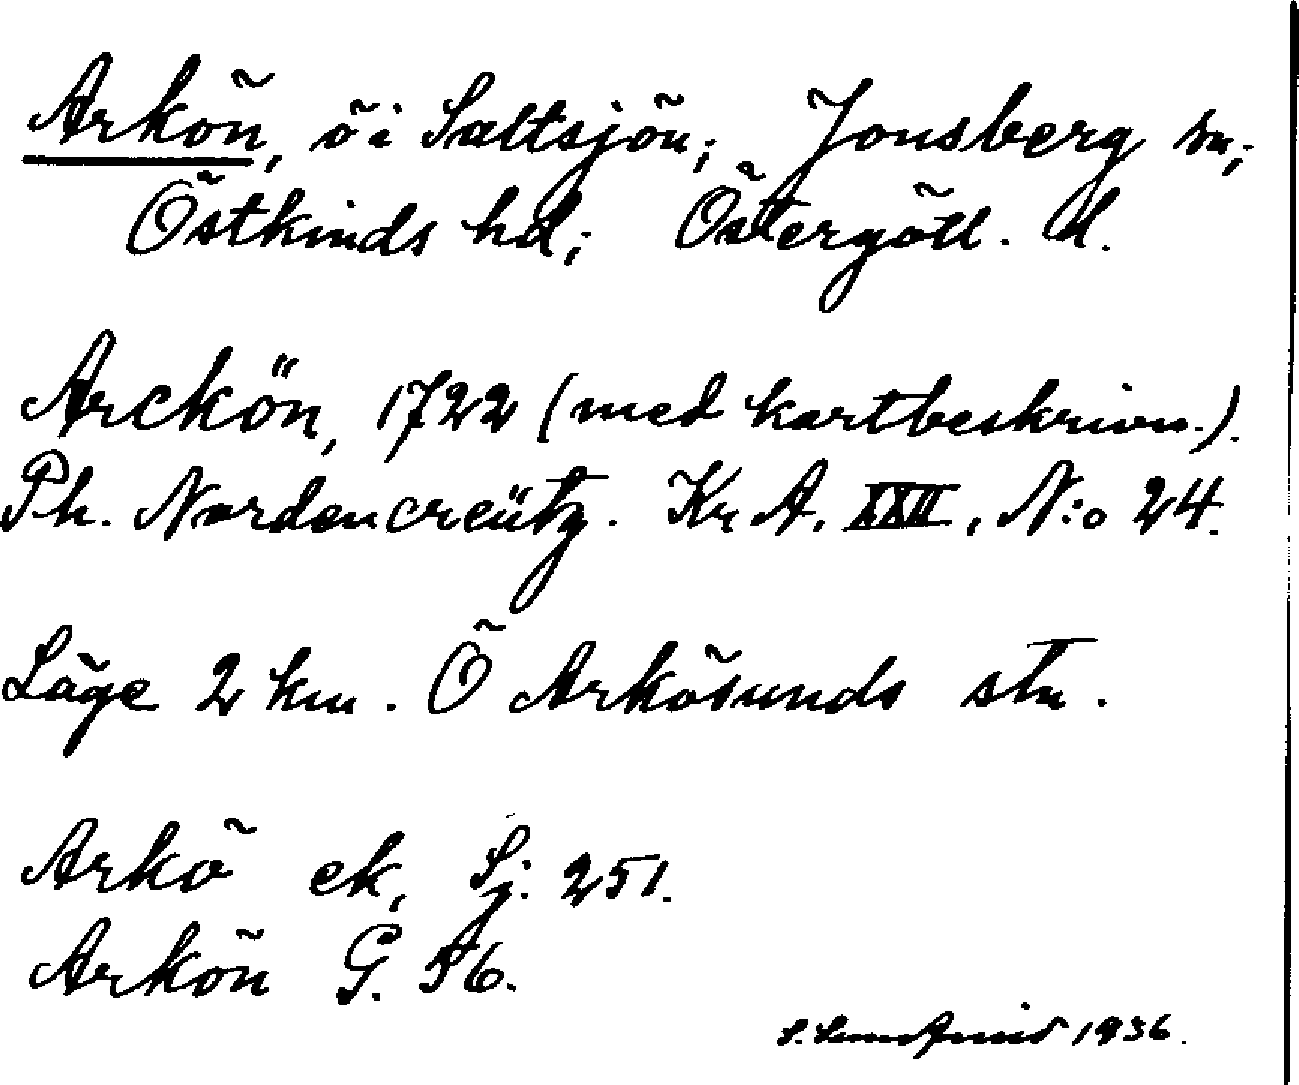 Arkön, ö i Saltsjön; Jonsberg sn;
Östkinds hd; Östergötl. l.
Arckön, 1722 (med kartbeskrivn.).
Ph. Nordencreütz. Kr A. XXII, N:o 24.
Läge 2 km. Ö Arkösunds stn.
Arkö ek, Sj. 251.
Arkön G. 56.
S. 1936.